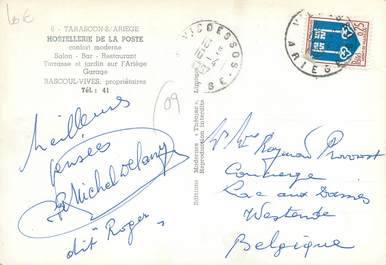 6 - TARASCON-S/ARIEGE
HOSTELLERIE DE LA POSTE
confort moderne
Salon - Bar - Restaurant
Terrasse et jardin sur l'Ariège
Garage
BASCOUL-VIVES, propriétaires
Tél.: 41
09
Meilleures
pensées
Michel Delany
dit "Roger"
Editions Modernes « Théojac » Limoges
Reproduction Interdite
VICDESSOS
ARIEGE
Mr Mme Raymond Provoost
Concierge
Lac aux Dames
Westende
Belgique